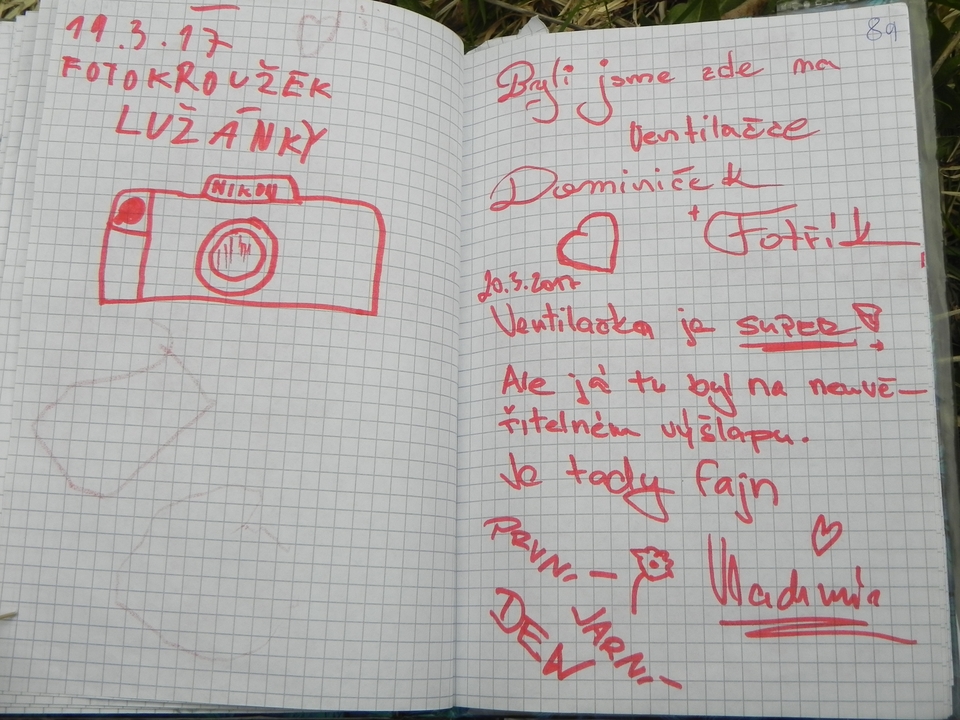 19.3.17
FOTOKROUŽEK
LUŽÁNKY
NIKON
89
Byli jsme zde na
ventilačce
Dominiček
+ Fotřík
20.3.2017
Ventilačka je super
Ale já tu byl na neuvě-
řitelném výšlapu.
Je tady fajn
PRVNÍ
JARNÍ
DEN
Vladimír